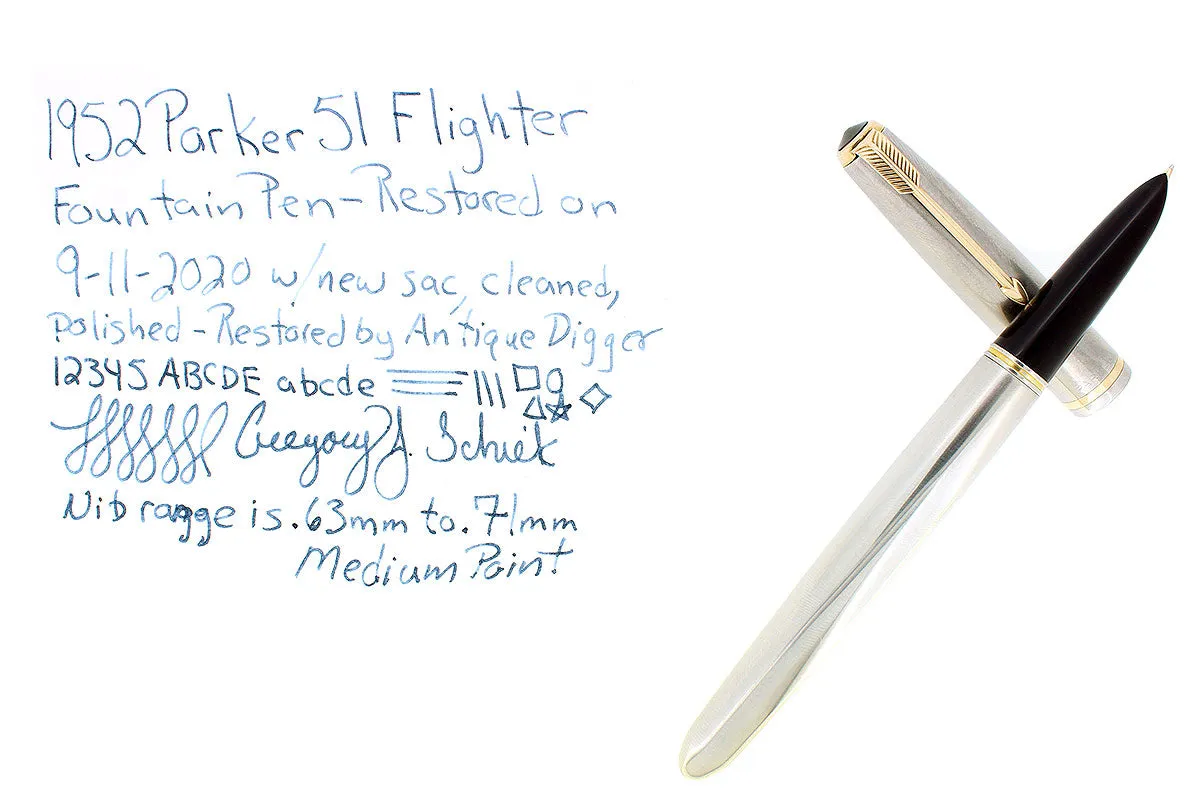 1952 Parker 51 Flighter
Fountain Pen - Restored on
9-11-2020 w/new sac, cleaned,
Polished - Restored by Antique Digger
12345 ABCDE abcde
Gregory J. Schiek
Nib range is .63mm to .71mm
Medium Point